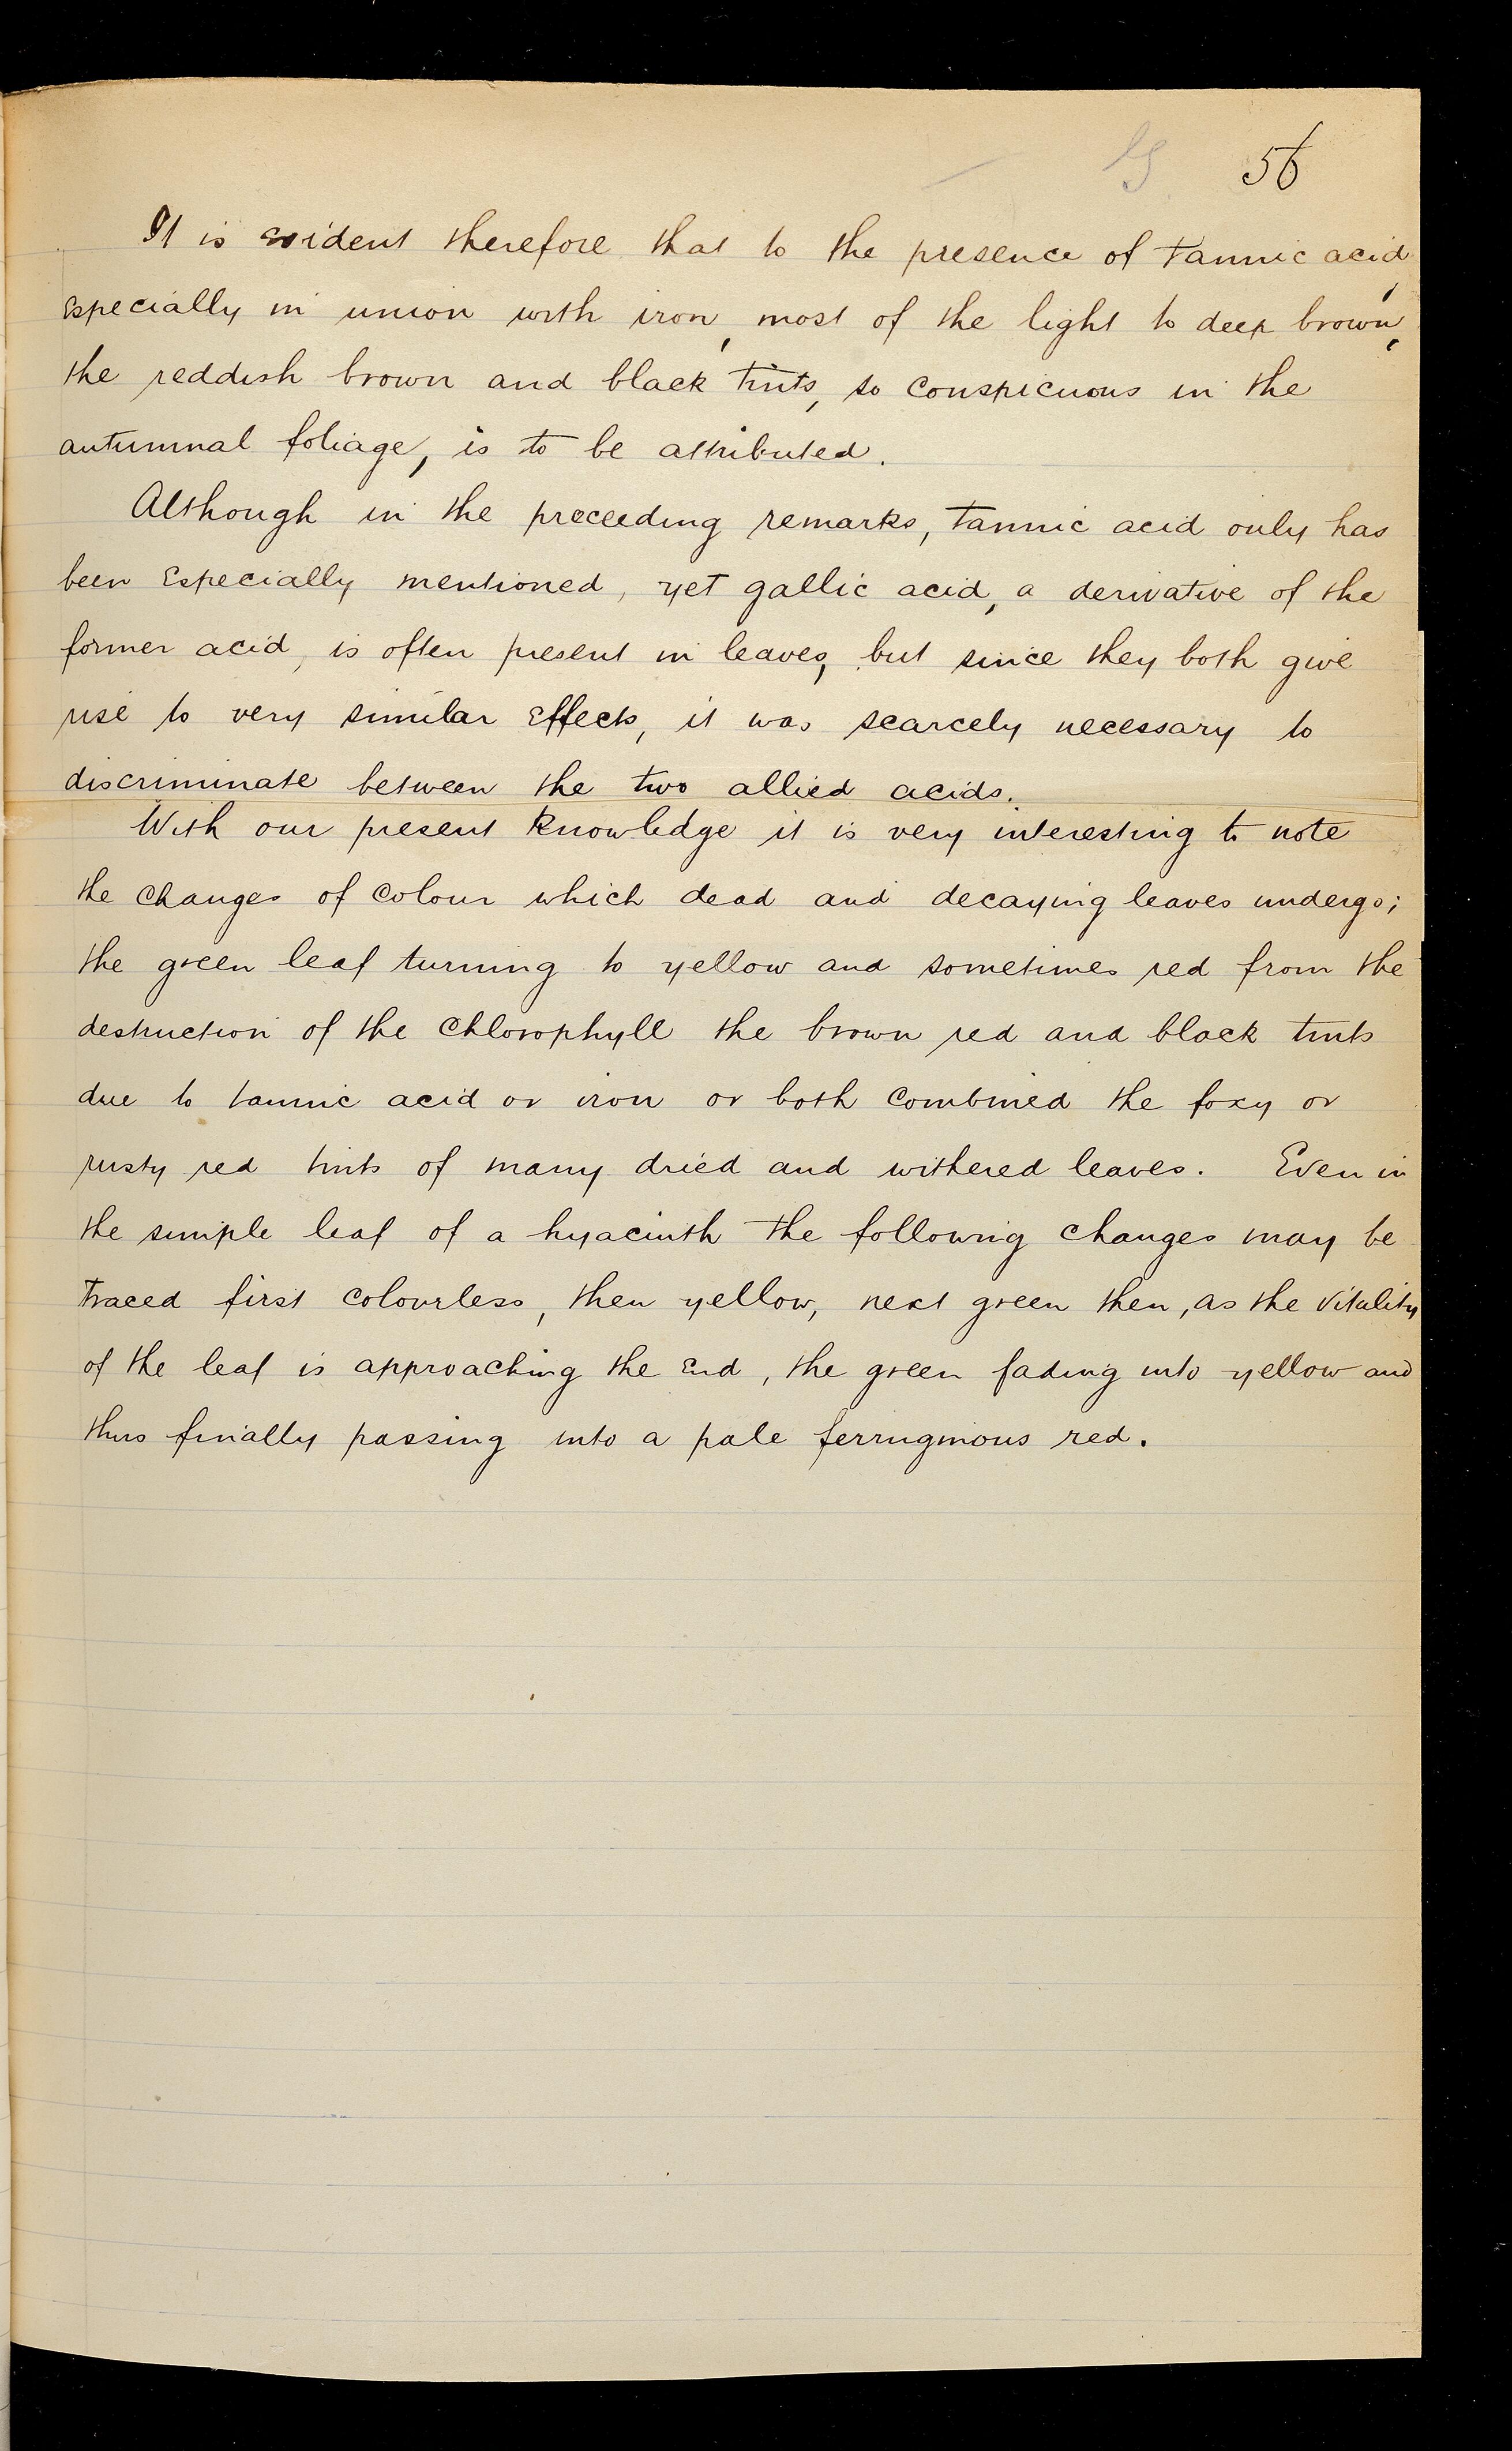 56
It is evident therefore that to the presence of tannic acid,
especially in union with iron, most of the light to deep brown,
the reddish brown and black tints, so conspicuous in the
autumnal foliage, is to be attributed.
Although in the preceeding remarks, tannic acid only has
been especially mentioned, yet gallic acid, a derivative of the
former acid, is often present in leaves, but since they both give
rise to very similar effects, it was scarcely necessary to
discriminate between the two allied acids.
With our present knowledge it is very interesting to note
the changes of colour which dead and decaying leaves undergo;
the green leaf turning to yellow and sometimes red from the
destruction of the chlorophyll the brown red and black tints
due to tannic acid or iron or both combined the foxy or
rusty red tints of many dried and withered leaves. Even in
the simple leaf of a hyacinth the following changes may be
traced first colourless, then yellow, next green then, as the vitality
of the leaf is approaching the end, the green fading into yellow and
thus finally passing into a pale ferruginous red.